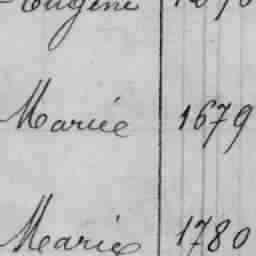 Eugène
Mariée 1679
Marie 1780